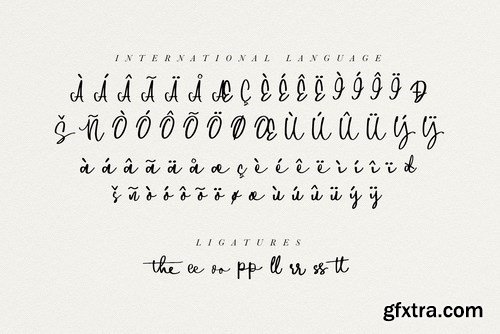 INTERNATIONAL LANGUAGE
À Á Â Ã Ä Å Æ Ç È É Ê Ë Ì Í Î Ï Ð
Š Ñ Ò Ó Ô Õ Ö Ø Œ Ù Ú Û Ü Ý Ÿ
à á â ã ä å æ ç è é ê ë ì í î ï d
š ñ ò ó ô õ ö ø œ ù ú û ü ý ÿ
LIGATURES
the ee oo pp ll rr ss tt
gfxtra.com